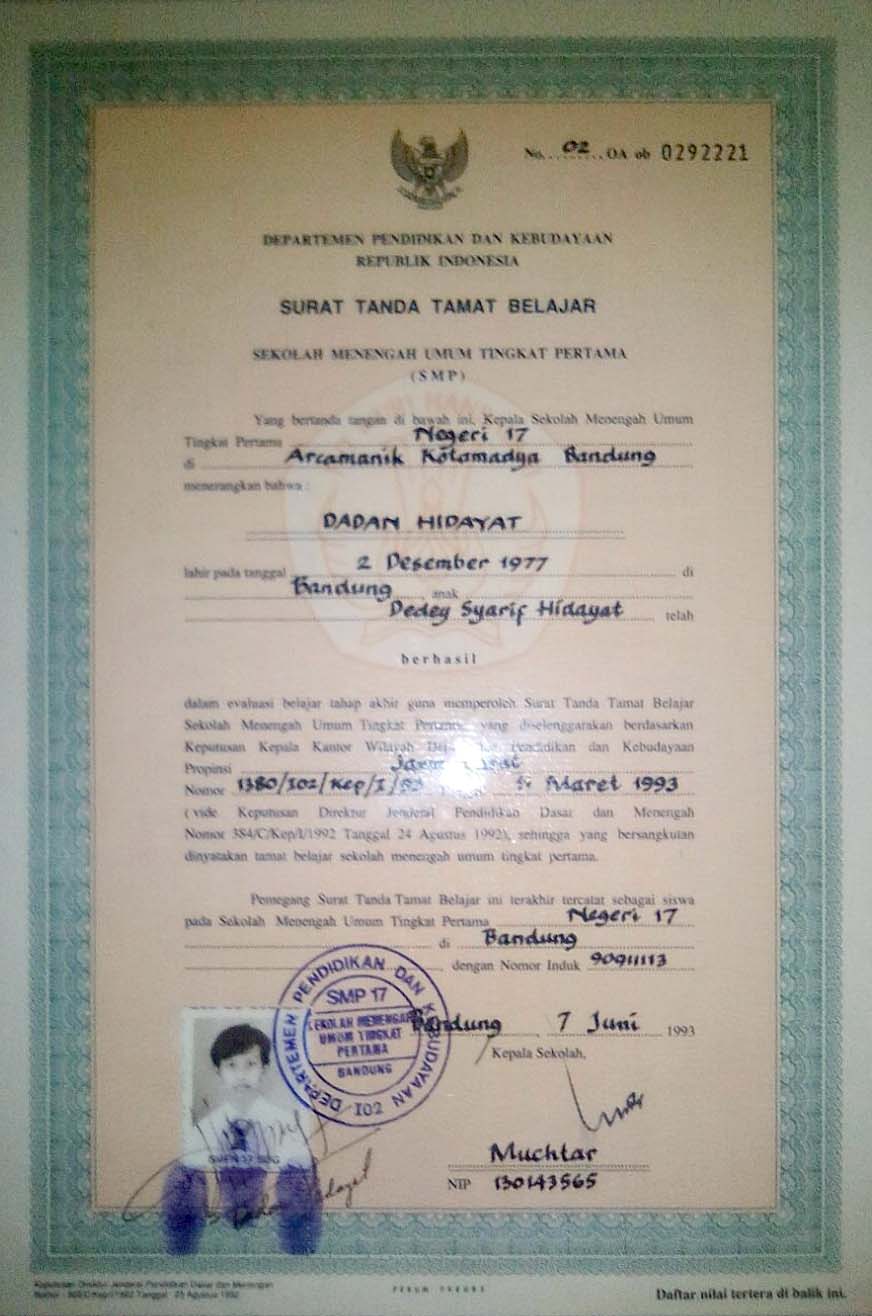 No. 02 .OA ob 0292221
DEPARTEMEN PENDIDIKAN DAN KEBUDAYAAN
REPUBLIK INDONESIA
SURAT TANDA TAMAT BELAJAR
SEKOLAH MENENGAH UMUM TINGKAT PERTAMA
(SMP)
Yang bertanda tangan di bawah ini, Kepala Sekolah Menengah Umum
Tingkat Pertama Negeri 17
di Arcamanik Kotamadya Bandung
menerangkan bahwa :
DADAN HIDAYAT
lahir pada tanggal 2 Desember 1977 di
Bandung anak
Dedey Syarif Hidayat telah
berhasil
dalam evaluasi belajar tahap akhir guna memperoleh Surat Tanda Tamat Belajar
Sekolah Menengah Umum Tingkat Pertama, yang diselenggarakan berdasarkan
Keputusan Kepala Kantor Wilayah Pendidikan dan Kebudayaan
Propinsi
Nomor 1380/I02/Kep/I/93 Maret 1993
( vide Keputusan Direktur Jenderal Pendidikan Dasar dan Menengah
Nomor 384/C/Kep/I/1992 Tanggal 24 Agustus 1992), sehingga yang bersangkutan
dinyatakan tamat belajar sekolah menengah umum tingkat pertama.
Pemegang Surat Tanda Tamat Belajar ini terakhir tercatat sebagai siswa
pada Sekolah Menengah Umum Tingkat Pertama Negeri 17
di Bandung
dengan Nomor Induk 90911113
Bandung, 7 Juni 1993
Kepala Sekolah,
DEPARTEMEN PENDIDIKAN DAN KEBUDAYAAN
SMP 17
SEKOLAH MENENGAH
UMUM TINGKAT
PERTAMA
BANDUNG
I02
Muchtar
NIP 130143565
Keputusan Direktur Jenderal Pendidikan Dasar dan Menengah
PERUM PERURI
Daftar nilai tertera di balik ini.